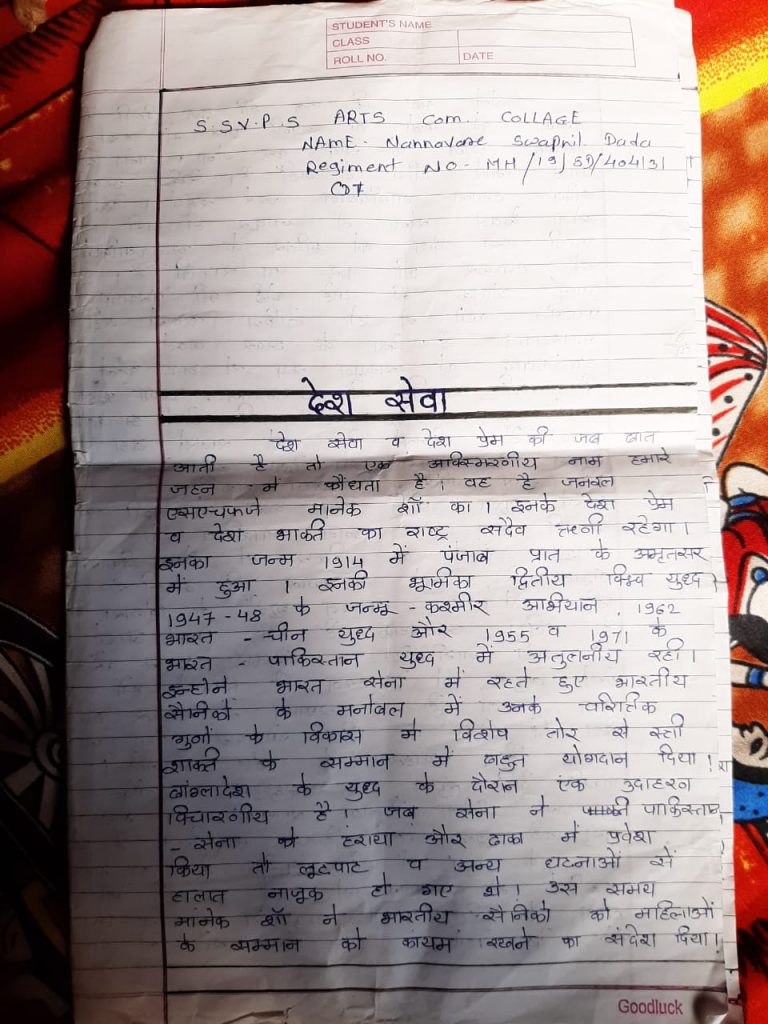 STUDENT'S NAME
CLASS
ROLL NO. DATE
S.S.V.P.S ARTS Com. COLLAGE
NAME - Nannavare Swapnil Dada
Regiment NO - MH/19/SD/404131
CDT
देश सेवा
देश सेवा व देश प्रेम की जब बात
आती है तो एक अविस्मिरणीय नाम हमारे
जहन मे कौधता है। वह है जनरल
एसएचफजे मानेक शॉ का। इनके देश प्रेम
व देश भाक्ती का राष्ट्र सदैव ऋणी रहेगा।
इनका जन्म 1914 में पंजाब प्रात के अमृतसर
में हुआ। इनकी भूमीका द्वितीय विश्व युध्द
1947-48 के जन्मू - कश्मीर आभियान, 1962
भारत - चीन युध्द और 1955 व 1971 के
भारत - पाकिस्तान युध्द में अतुलनीय रही।
इन्होने भारत सेना में रहते हुए भारतीय
सैनिको के मनोबल में उनके चारित्रिक
गुनों के विकास मे विशेष तोर से स्त्री
शाक्ती के सम्मान में बहुत योगदान दिया!
बांग्लादेश के युध्द के दौरान एक उदाहरण
विचारणीय है। जब सेना ने पाकिस्तान
- सेना को हराया और ढाका में प्रवेश
किया तो लूटपाट व अन्य घटनाओं सें
हालात नाजूक हो गए थे। उस समय
मांनेक शॉ ने भारतीय सैनिको को महिलाओं
के सम्मान को कायम रखने का संदेश दिया!
Goodluck